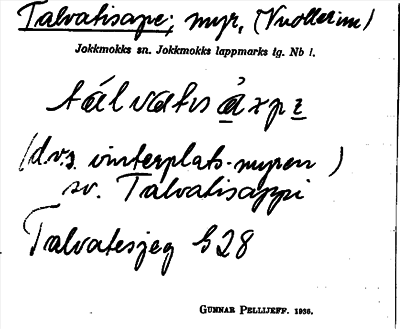 Talvatisape; myr, (Vuollerim)
Jokkmokks sn. Jokkmokks lappmarks tg. Nb l.
tálvatis å̱xpe̱
(dvs. vinterplats-myren)
sv. Talvatisappi
Talvatesjeg G28
GUNNAR PELLIJEFF. 1936.